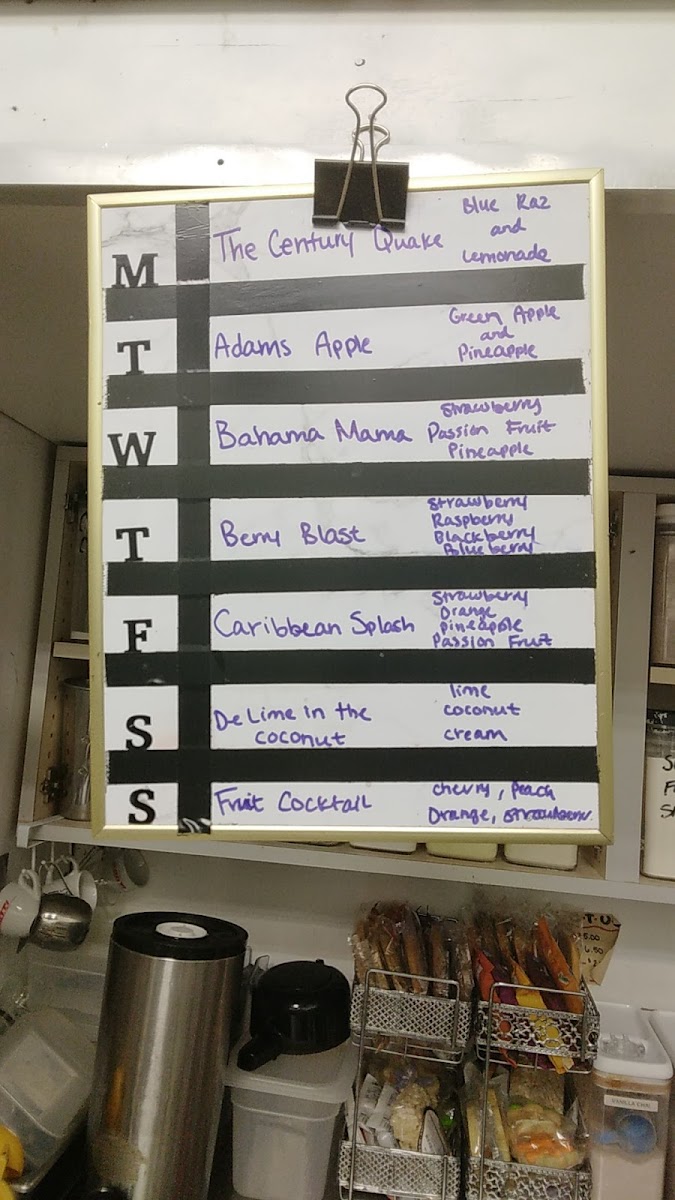 M
The Century Quake
Blue Raz
and
Lemonade
T
Adams Apple
Green Apple
and
Pineapple
W
Bahama Mama
Strawberry
Passion Fruit
Pineapple
T
Berry Blast
Strawberry
Raspberry
Blackberry
Blueberry
F
Caribbean Splash
Strawberry
Orange
pineapple
Passion Fruit
S
De Lime in the
coconut
lime
coconut
cream
S
Fruit Cocktail
cherry, Peach
Orange, strawberry
VANILLA CHAI